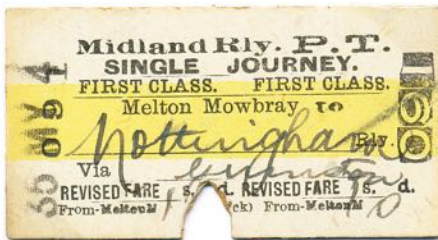 Midland Rly. P.T.
SINGLE JOURNEY.
FIRST CLASS. FIRST CLASS.
Melton Mowbray to
Nottingham Rly.
Via
REVISED FARE s. d. REVISED FARE s. d.
From-Melton M ck) From-Melton M